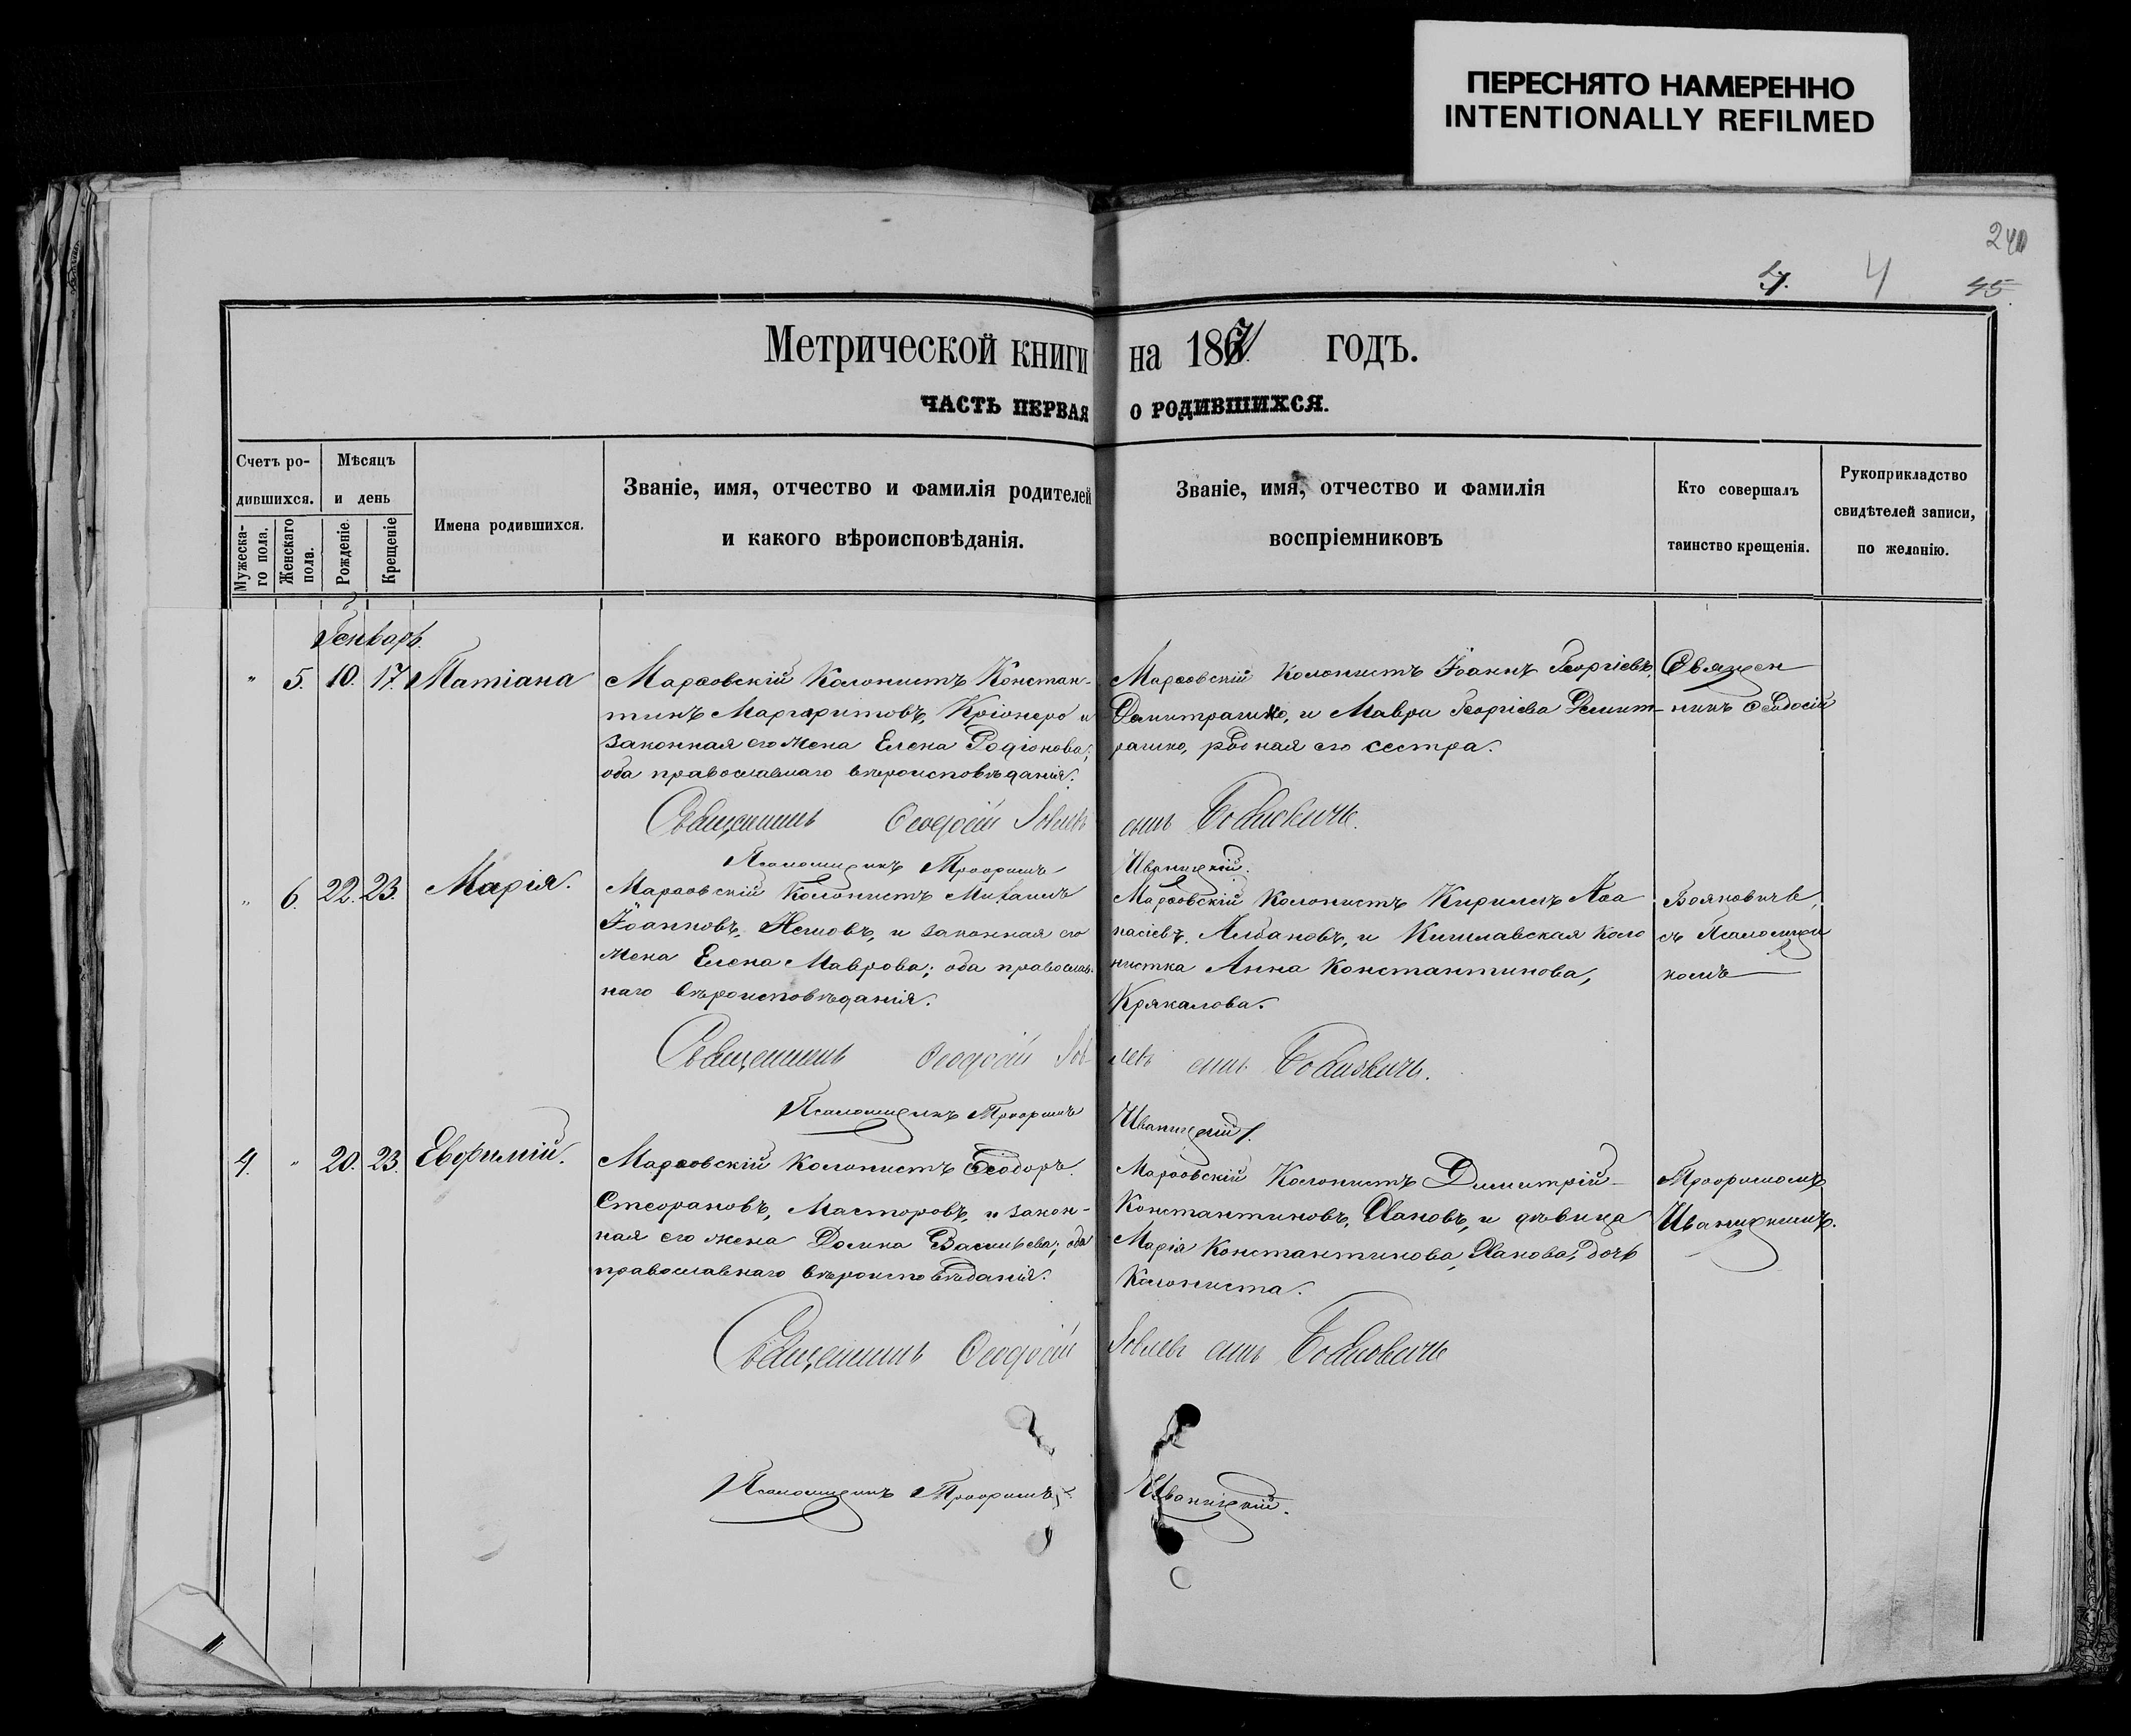 ПЕРЕСНЯТО НАМЕРЕННО
INTENTIONALLY REFILMED
240
4. 4 45.
Метрической книги на 1871 годъ.
ЧАСТЬ ПЕРВАЯ О РОДИВШИХСЯ.
Счетъ ро-
дившихся.
Мужеска-
го пола.
Женскаго
пола.
Мѣсяцъ
и день
Рожденіе
Крещеніе
Имена родившихся.
Званіе, имя, отчество и фамилія родителей
и какого вѣроисповѣданія.
Званіе, имя, отчество и фамилія
воспріемниковъ
Кто совершалъ
таинство крещенія.
Рукоприкладство
свидѣтелей записи,
по желанію.
Генварь
" 5. 10. 17. Татіана
Марфовскій Колонистъ Констан-
тинъ Маргаритовъ, и
законная его жена Елена Родіонова;
оба православнаго вѣроисповѣданія.
Марфовскій Колонистъ Іоаннъ Георгіевъ,
Димитрашко, и Мавра Георгіева Димит-
рашко, родная его сестра.
Священ
никъ Ѳеодосій
Священникъ Ѳеодосій Іовлевъ сынъ
Псаломщикъ Трофимъ Иваницкій.
" 6. 22. 23. Марія.
Марфовскій Колонистъ Михаилъ
Іоанновъ, и законная его
жена Елена Маврова; оба православ-
наго вѣроисповѣданія.
Марфовскій Колонистъ Кириллъ Аѳа
насіевъ, Албановъ, и Кишлавская коло
нистка Анна Константинова,
Крякалова.
Бояновичъ,
съ Псаломщи
комъ
Священникъ Ѳеодосій Іовлевъ сынъ
Псаломщикъ Трофимъ Иваницкій.
4. " 20. 23. Евфимій.
Марфовскій Колонистъ Ѳеодоръ
Стефановъ, Масторовъ, и закон-
ная его жена Домна Васильева; оба
православнаго вѣроисповѣданія.
Марфовскій Колонистъ Димитрій
Константиновъ, и дѣвица
Марія Константинова, дочь
Колониста.
Трофимомъ
Иваницкимъ.
Священникъ Ѳеодосій Іовлевъ сынъ
Псаломщикъ Трофимъ Иваницкій.